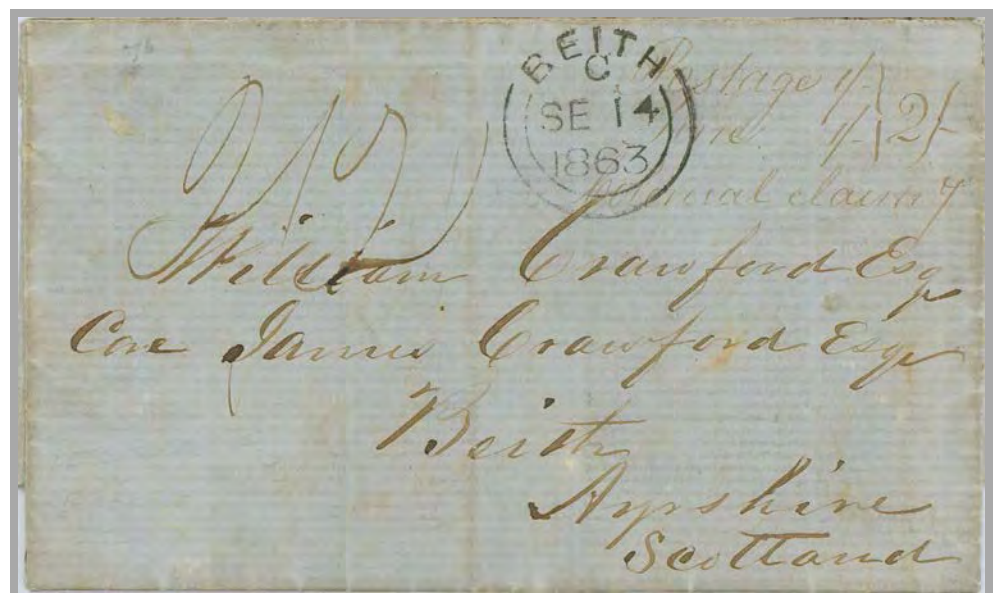 BEITH
C
SE 14
1863
Postage 1/-
Fine 1/- 2/-
Colonial claim
William Crawford Esq
Care James Crawford Esqr
Beith
Ayrshire
Scotland